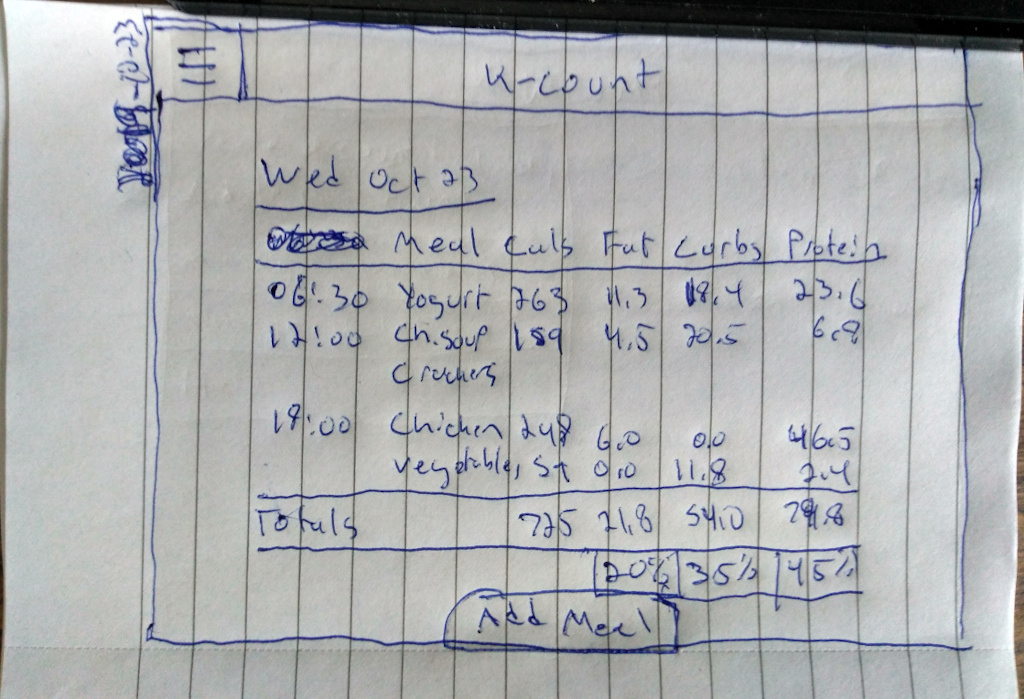 K-count
Wed Oct 23
Meal Cals Fat Carbs Protein
06:30 Yogurt 263 11.3 18.4 23.6
12:00 Ch.soup 159 4.5 20.5 6.8
Crackers
18:00 Chicken 248 6.0 0.0 46.5
vegetables, 57 0.0 11.8 2.4
Totals 725 21.8 54.0 79.8
20% 35% 45%
Add Meal